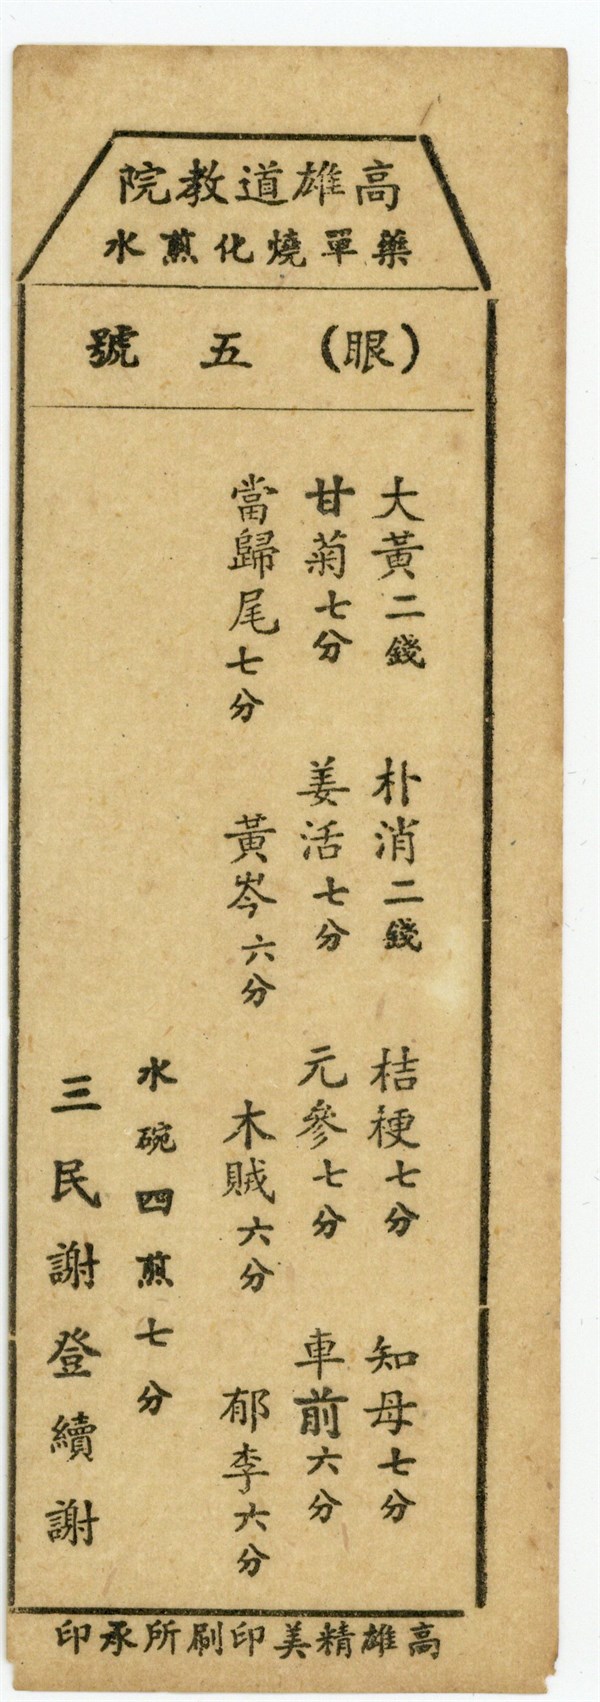 高雄道教院
藥單燒化煎水
(眼)五號
大黃二錢 朴消二錢 桔梗七分 知母七分
甘菊七分 姜活七分 元參七分 車前六分
當歸尾七分 黃岑六分 木賊六分 郁李六分
水碗四煎七分
三民謝登續謝
高雄精美印刷所承印